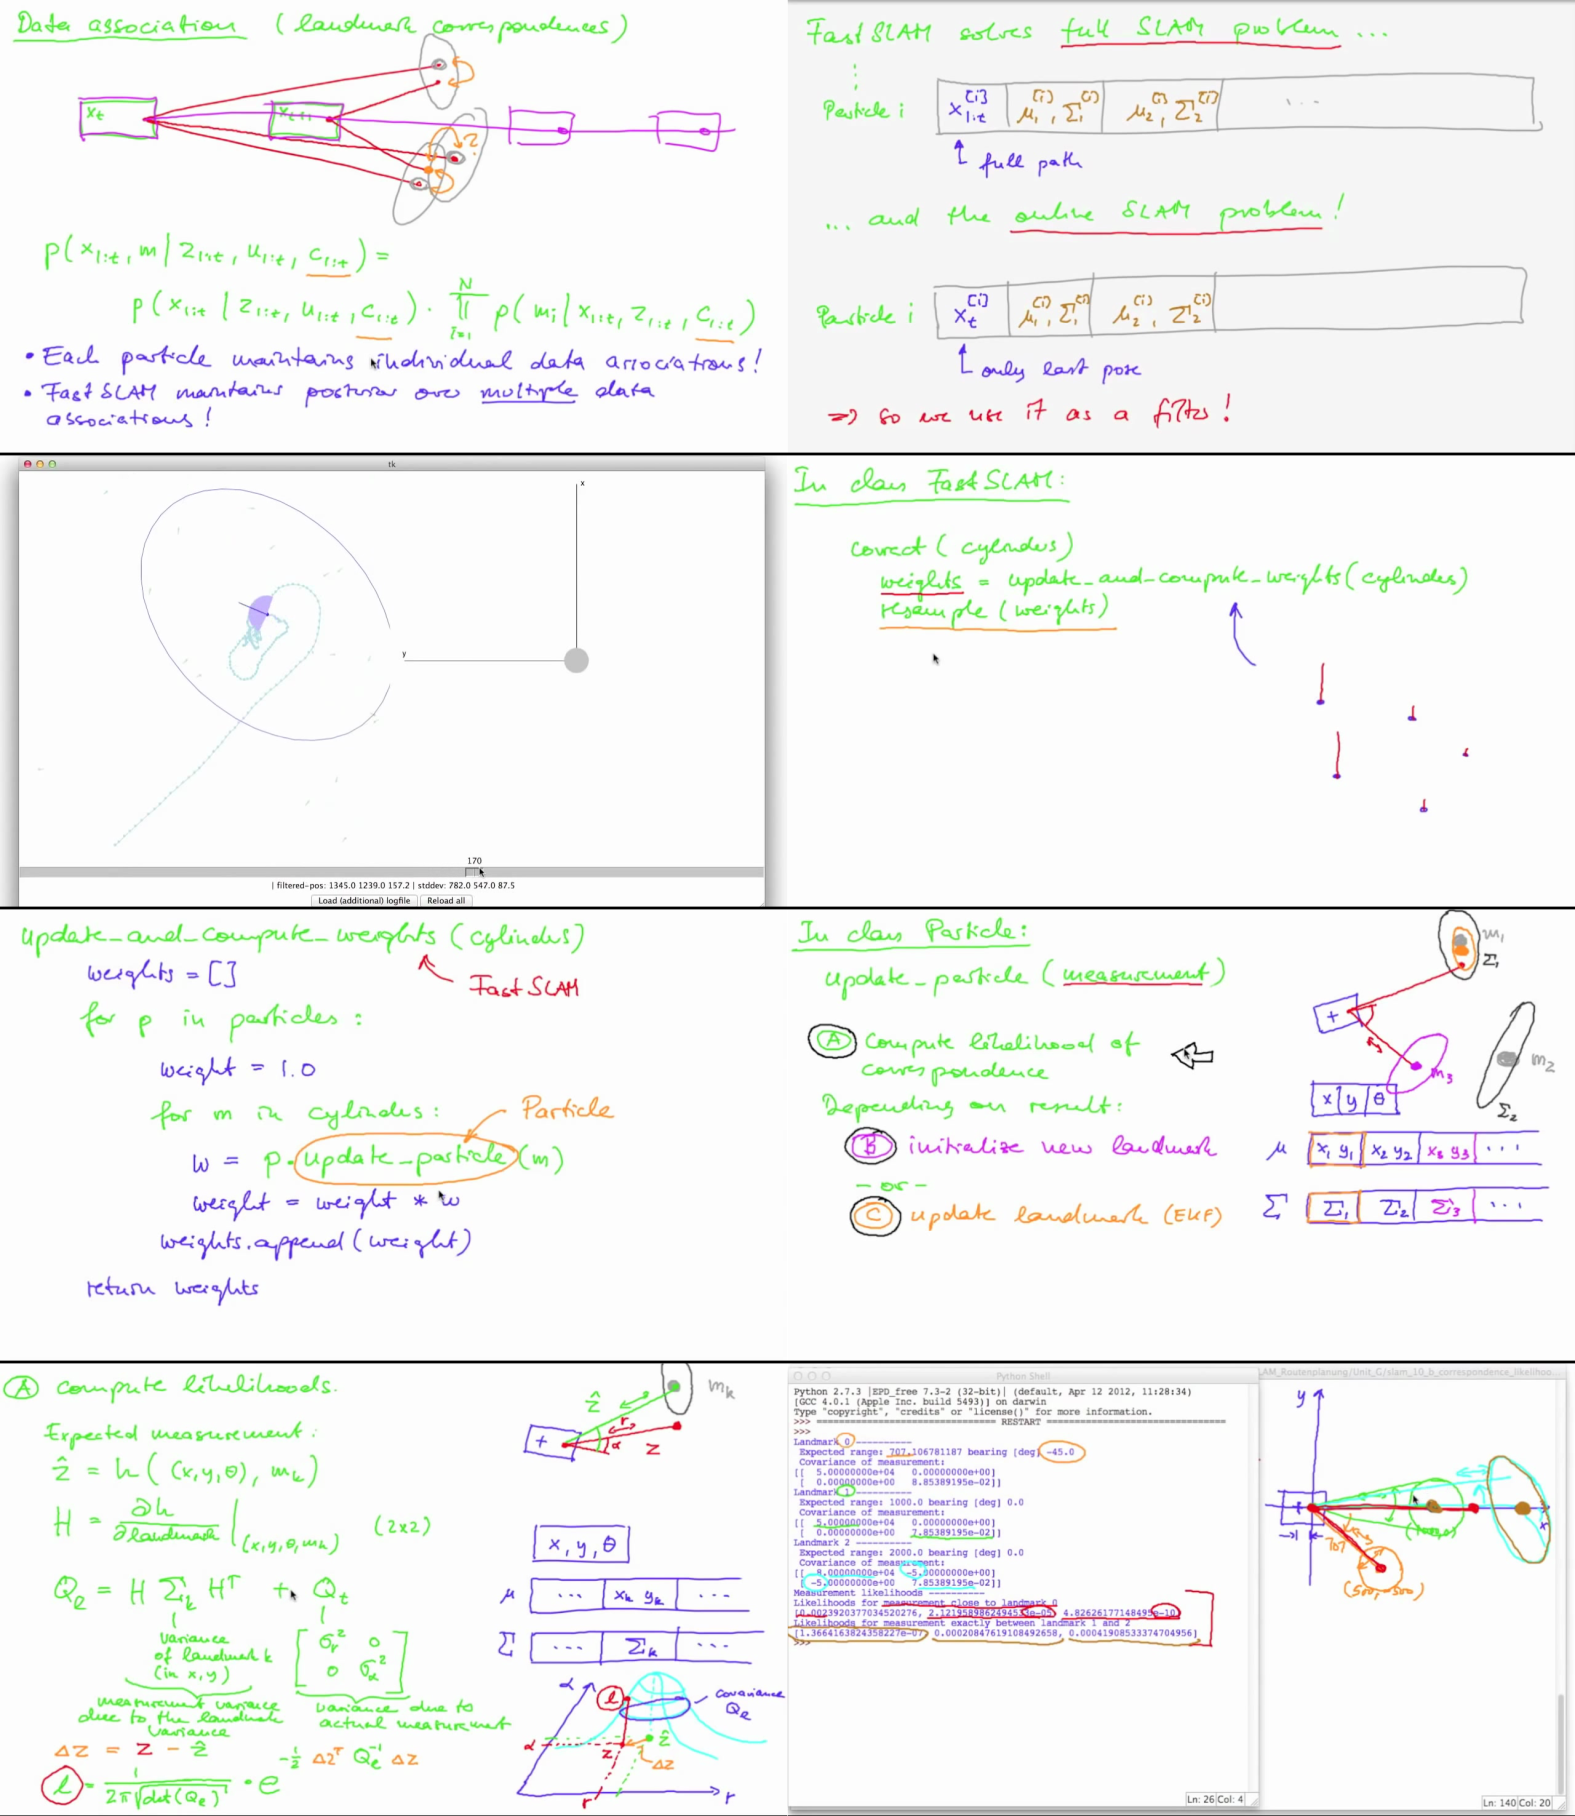 Data association (landmark correspondences)
x_t x_t+1
?
p(x_1:t, m | z_1:t, u_1:t, c_1:t) =
p(x_1:t | z_1:t, u_1:t, c_1:t) · ∏ i=1 N p(m_i | x_1:t, z_1:t, c_1:t)
• Each particle maintains individual data associations!
• FastSLAM maintains posterior over multiple data
associations!
FastSLAM solves full SLAM problem ...
Particle i x_1:t^[i] μ_1^[i], Σ_1^[i] μ_2^[i], Σ_2^[i] ...
full path
... and the online SLAM problem!
Particle i x_t^[i] μ_1^[i], Σ_1^[i] μ_2^[i], Σ_2^[i]
only last pose
⇒ so we use it as a filter!
tk
x
y
170
| filtered-pos: 1345.0 1239.0 157.2 | stddev: 782.0 547.0 87.5
Load (additional) logfile Reload all
In class FastSLAM:
correct(cylinders)
weights = update_and_compute_weights(cylinders)
resample(weights)
update_and_compute_weights(cylinders)
weights = []
FastSLAM
for p in particles:
weight = 1.0
for m in cylinders:
Particle
w = p.update_particle(m)
weight = weight * w
weights.append(weight)
return weights
In class Particle:
update_particle(measurement)
m_1
Σ_1
A compute likelihood of
correspondence
m_2
m_3
Σ_2
x y θ
Depending on result:
B initialize new landmark
μ x_1 y_1 x_2 y_2 x_3 y_3 ...
-or-
C update landmark (EKF)
Σ Σ_1 Σ_2 Σ_3 ...
A compute likelihoods.
m_k
ẑ r α z
Expected measurement:
ẑ = h((x,y,θ), m_k)
H = ∂h/∂landmark |(x,y,θ,m_k) (2x2)
x, y, θ
Q_e = H Σ_k H^T + Q_t
μ ... x_k y_k ...
Σ ... Σ_k ...
variance
of landmark k
(in x,y)
σ_r² 0
0 σ_α²
measurement variance
due to the landmark
variance
variance due to
actual measurement
Δz = z - ẑ
l = 1/(2π√det(Q_e)) · e^(-1/2 Δz^T Q_e^-1 Δz)
α
l
covariance
Q_e
α z ẑ
Δz
r r
Python Shell
Python 2.7.3 |EPD_free 7.3-2 (32-bit)| (default, Apr 12 2012, 11:28:34)
[GCC 4.0.1 (Apple Inc. build 5493)] on darwin
Type "copyright", "credits" or "license()" for more information.
>>> ================================ RESTART ================================
>>>
Landmark 0 ----------
Expected range: 707.106781187 bearing [deg] -45.0
Covariance of measurement:
[[ 5.00000000e+04 0.00000000e+00]
[ 0.00000000e+00 8.85389195e-02]]
Landmark 1 ----------
Expected range: 1000.0 bearing [deg] 0.0
Covariance of measurement:
[[ 5.00000000e+04 0.00000000e+00]
[ 0.00000000e+00 7.85389195e-02]]
Landmark 2 ----------
Expected range: 2000.0 bearing [deg] 0.0
Covariance of measurement:
Measurement likelihoods ----------
Likelihoods for measurement close to landmark 0
Likelihoods for measurement exactly between landmark 1 and 2
[1.3664163824358227e-07, 0.00020847619108492658, 0.00041908533374704956]
>>>
Ln: 26 Col: 4
y
x
707
(500,-500)
Ln: 140 Col: 20